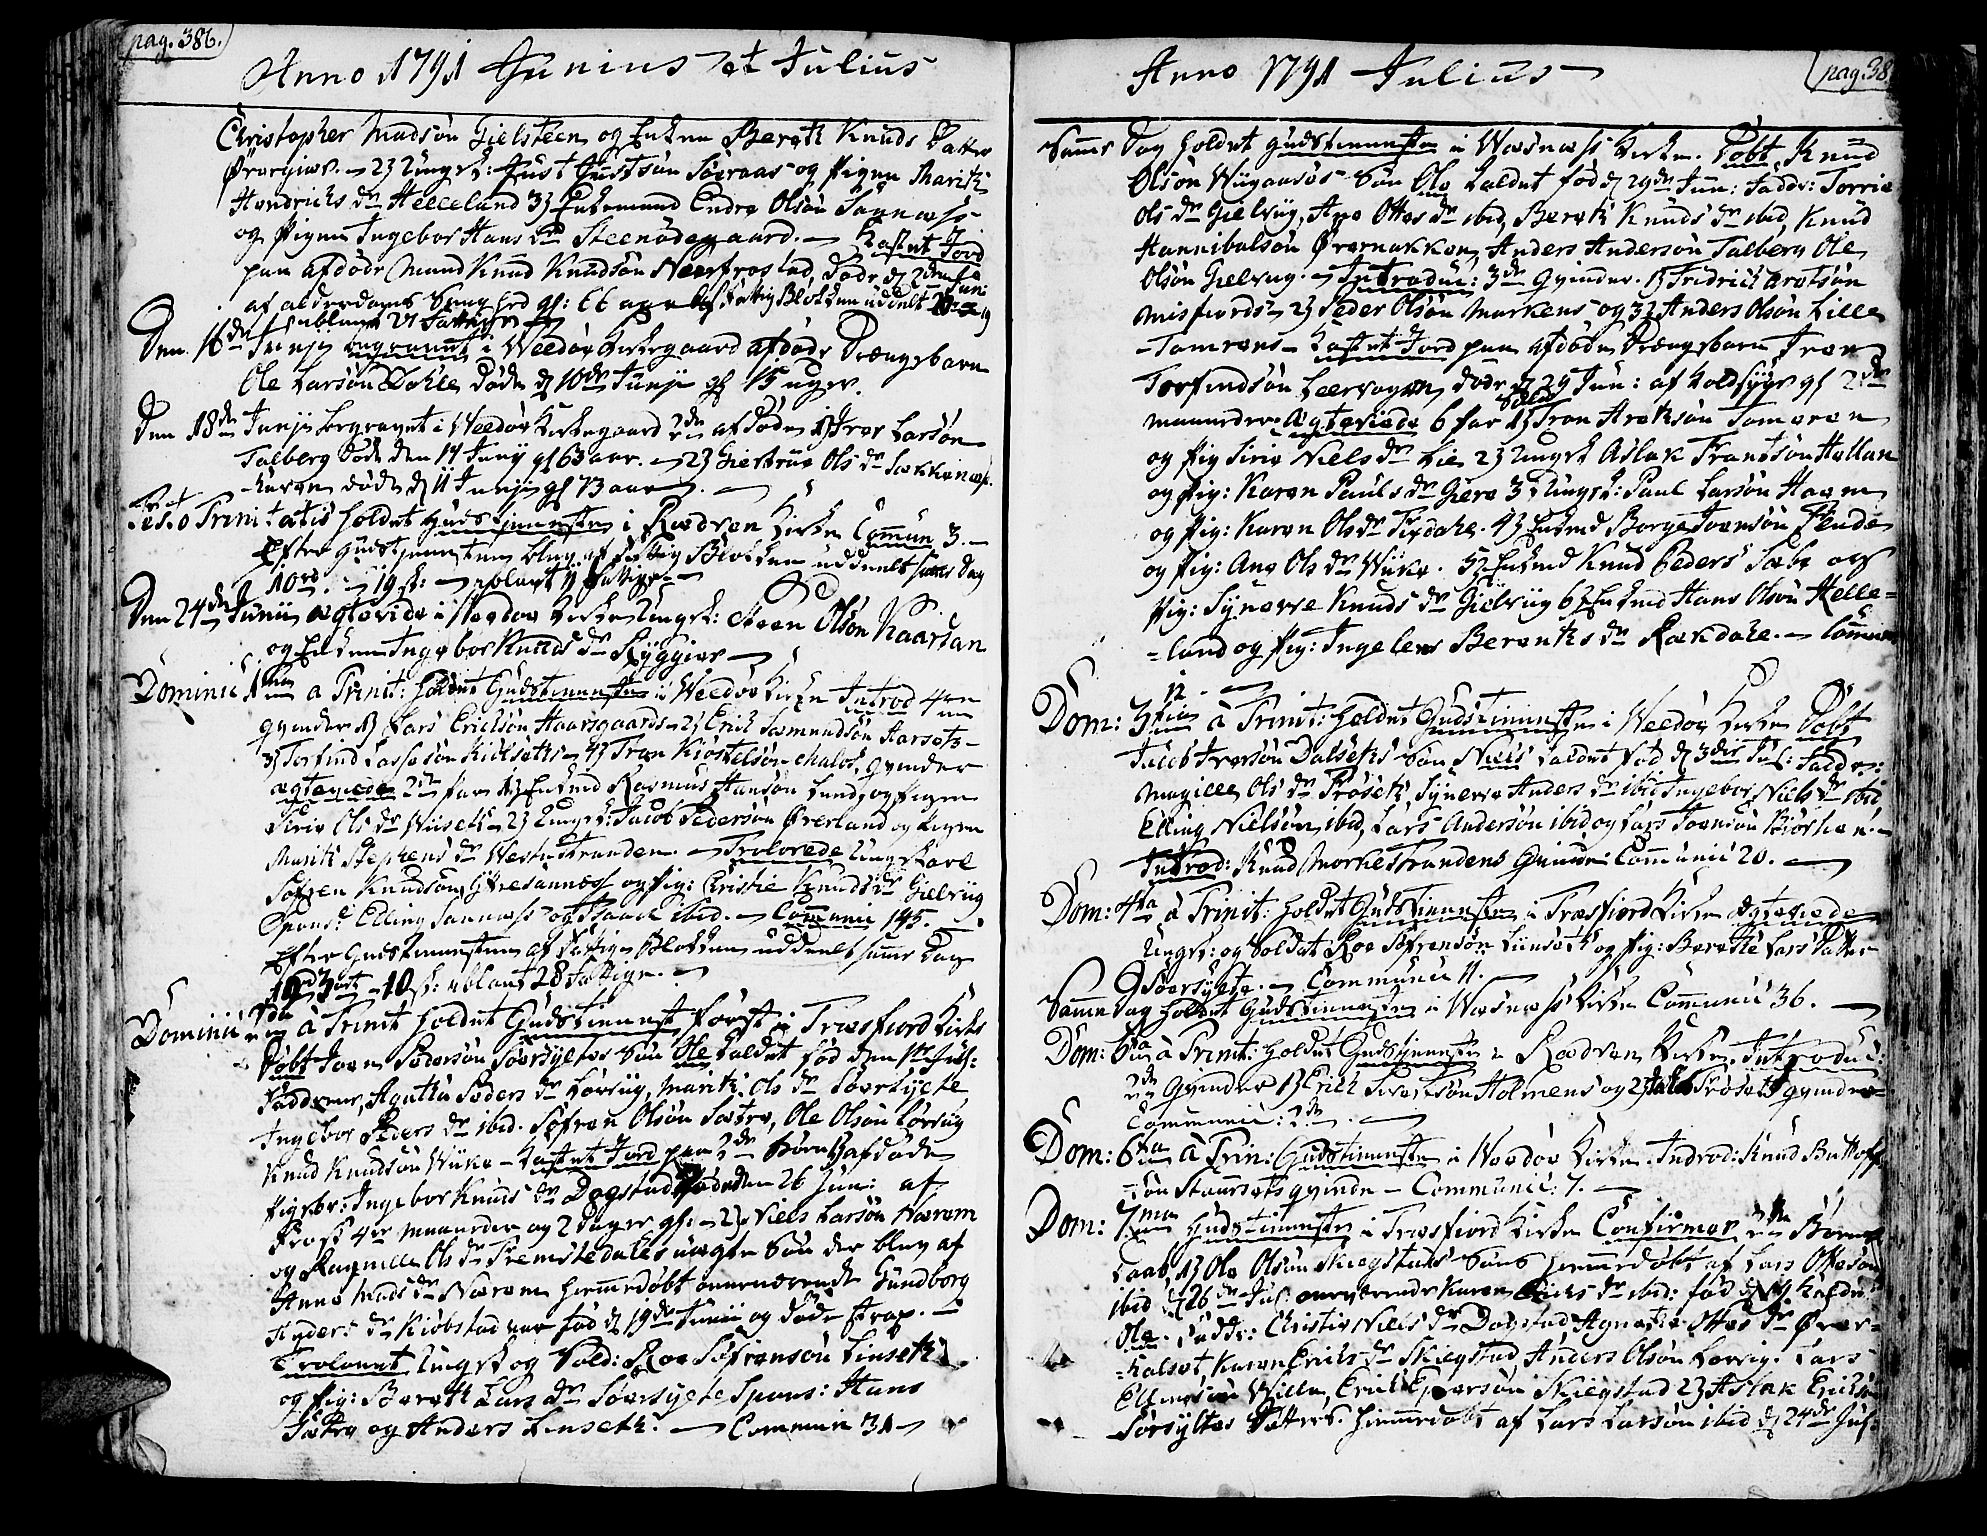 pag. 386.
Anno 1791 Junius et Julius
Christopher Madsøn Gielsteen og Enken Bereth Knuds Datter
2) Ungk: Just Justsøn Søeraas og Pigen Marith
Hendrichs dr Helleland 3) Enkemand Endre Olsøn Sannæss
og Pigen Ingebor Hans dr Steenødegaard. Kastet Jord
paa afdøde Mand Knud Knudsøn Nærfrostad, døde d 2den Juni
af alderdoms Svaghed gl: 66 aar af Fattig Blokken uddeelt
iblant 21 Fattige
Den 16de Junji begravet i Weedøe Kirkegaard afdøde Drængebarn
Ole Larsøn Dahle døde d 10de Junji gl 15 uger.
Den 18de Junji begravet i Weedøe Kirkegaard 2de afdøde 1) Iver Larsøn
Talberg døde den 14 Junij gl 63 aar. 2) Giertrue Ols dr
døde d 11 Junji gl 73 aar.
Fest: Trinitatis holdet Gudstjenesten i Rødven Kirke Commun 3.
Efter Gudstjenesten blev af Fattig Blokken uddeelt samme Dag
10rd 19 s: iblant 11 Fattige
Den 24de Junii Ægteviede i Weedøe Kirke Ungk: Steen Olsøn Kaarsan
og Enken Ingebor Knuds dr Ryggier
Dominic 1ma a Trinit: holdet Gudstienesten i Weedøe Kirke Introd 4re
Qvinder 1) Lars Erichsøn Haarsgaards 2) Erich Sæmundsøn Aarsets
3) Torfind Lassesøn Kielseths 4) Tron Kiøstelsøn Malos, Qvinder
Ægteviede 2de par 1) Enkmd Rasmus Hansøn Lund, og Pigen
Siri Ols dr Wiiseth 2) Ungk: Jacob Pedersøn Øverland og Pigen
Marith Stephens dr Westestranden. Trolovede Ungkarl
Søfren Knudsøn og Pig: Christie Knuds dr Gielvüg
Spons: Elling Sannæss og Isaach ibid. Communic 145.
Efter Gudstienesten af Fattige Blokken uddeelt samme Dag
19rd 3ort 10s: iblant 28 Fattige.
Dominic 2da à Trinit holdet Gudstienest først i Tresfiord Kirke
Døbt Joen Pedersøn Søersyltes Søn Ole kaldet fød den 1ste Jul:
Faddere, Agnethe Peders dr Lørvüg, Marith Ols dr Søersylte
Ingebor Peders dr ibid. Søfren Olsøn Sætre, Ole Olsøn Lørvüg
Knud Knudsøn Wiike Kastet Jord paa 2de Børn 1) afdøde
Pigebr: Ingebor Knuds dr Dagstad døde den 26 Jun: af
4re maaneder og 2 Dager gl: 2) Niels Larsøn Nærem
og Ragnille Ols dr Fremstedals uægte Søn der blev af
Anne Mads dr Nærem hiemmedøbt overværende Gundborg
Anders dr Kiøbstad var fød d 19de Junii og døde strax.
Trolovet Ungk og Sold: Roe Søfrensøn Linseth
og Pig: Bereth Lars dr Søersylte Spons: Hans
Sætre og Anders Linseth. Communic 31
Anno 1791 Julius
pag. 38
Samme Dag holdet Gudstienesten i Waagnæss Kirke. Døbt, Knud
Olsøn Wiigaasøs Søn Ole kaldet fød d 29de Jun: Fadde: Torrie
Ols dr Gielvüg, Ane Ottes dr ibid, Bereth Knuds dr ibid, Knud
Hannibalsøn Øvernakken, Anders Andersøn Talberg Ole
Olsøn Gielvug. Introduc: 3de Qvinder. 1) Fridrich Aretsøn
Misfiords 2) Peder Olsøn Markens og 3) Anders Olsøn Lille
Tomrens Kastet Jord paa afdøde Drængebarn Iver
Torfindsøn Leervogen, døde d 29 Jun: af Koldsyge gl 2de
maaneder. Ægteviede 6 par 1) Sold: Tron Aretsøn Tomeren
og Pig Sirie Niels dr Lie 2) Ungk Aslak Frantsøn Hellan
og Pig: Karen Pauls dr Giere 3) Ungk: Paul Larsøn Haaem
og Pig: Karen Ols dr 4) Enkmd Børge Joensøn Tende
og Pig: Ane Ols dr Wiike. 5) Enkmd Knud Peders: Sæbø og
Pig: Synneve Knuds dr Gielvüg 6) Enkmd Hans Olsøn Helle=
=land og Pig: Ingeleve Berenths dr Rærdahl. Commun
12.
Dom: 3tia à Trinit: holdet Gudstienesten i Weedøe Kirke Døbt
Jacob Iversøn Dalseths Søn Niels kaldet fød d 3die Jul: Fadde:
Magille Ols dr Frøseth, Synneve Anders dr ibid Ingebor Niels dr ibid
Elling Nielsøn ibid, Lars Andersøn ibid og Lars Joensøn Biørhen.
Introd: Knud Morkestrandens Qvinde Communic 20.
Dom: 4ta à Trinit: holdet Gudstienesten i Tresfiord Kirke Ægteviede
Ungk: og Soldat Roe Søfrensøn Linseth og Pig: Berethe Lars Datter
Søersylte. Communic 11.
Samme Dag holdet Gudstienesten i Waagnæss Kirke Communic 36.
Dom: 5ta à Trinit: holdet Gudstjenesten i Rødven Kirke. Introduc:
2de Qvinder 1) Erich Holmens og 2) Frøseth Qvinder
Communic: 2.
Dom: 6ta à Trin: Gudstienesten i Weedøe Kirke. Introd: Knud Buttolf=
=søn Staursets Qvinde Communic: 7.
Dom: 7ma Gudstienesten i Tresfiord Kirke Confirmer 2de Børns
Daab 1) Ole Olsøn Skiegstads Søns hiemedøbt af Lars Ottesøn
ibid d 26de Jul: overværende Karen Erichs dr ibid: fød d 19 kaldet
Ole. Fadde: Christie Niels dr Dagstad Agnethe Ottes dr Øver=
=kalset, Karen Erichs dr Skiegstad, Anders Olsøn Lorvig. Lars
Ellingsøn Wille, Erich Iversøn Skiegstad 2) Aslak Erichsøn
Sørsyltes Datters hiemmedøbt af Lars Larsøn ibid d 24de Jul: